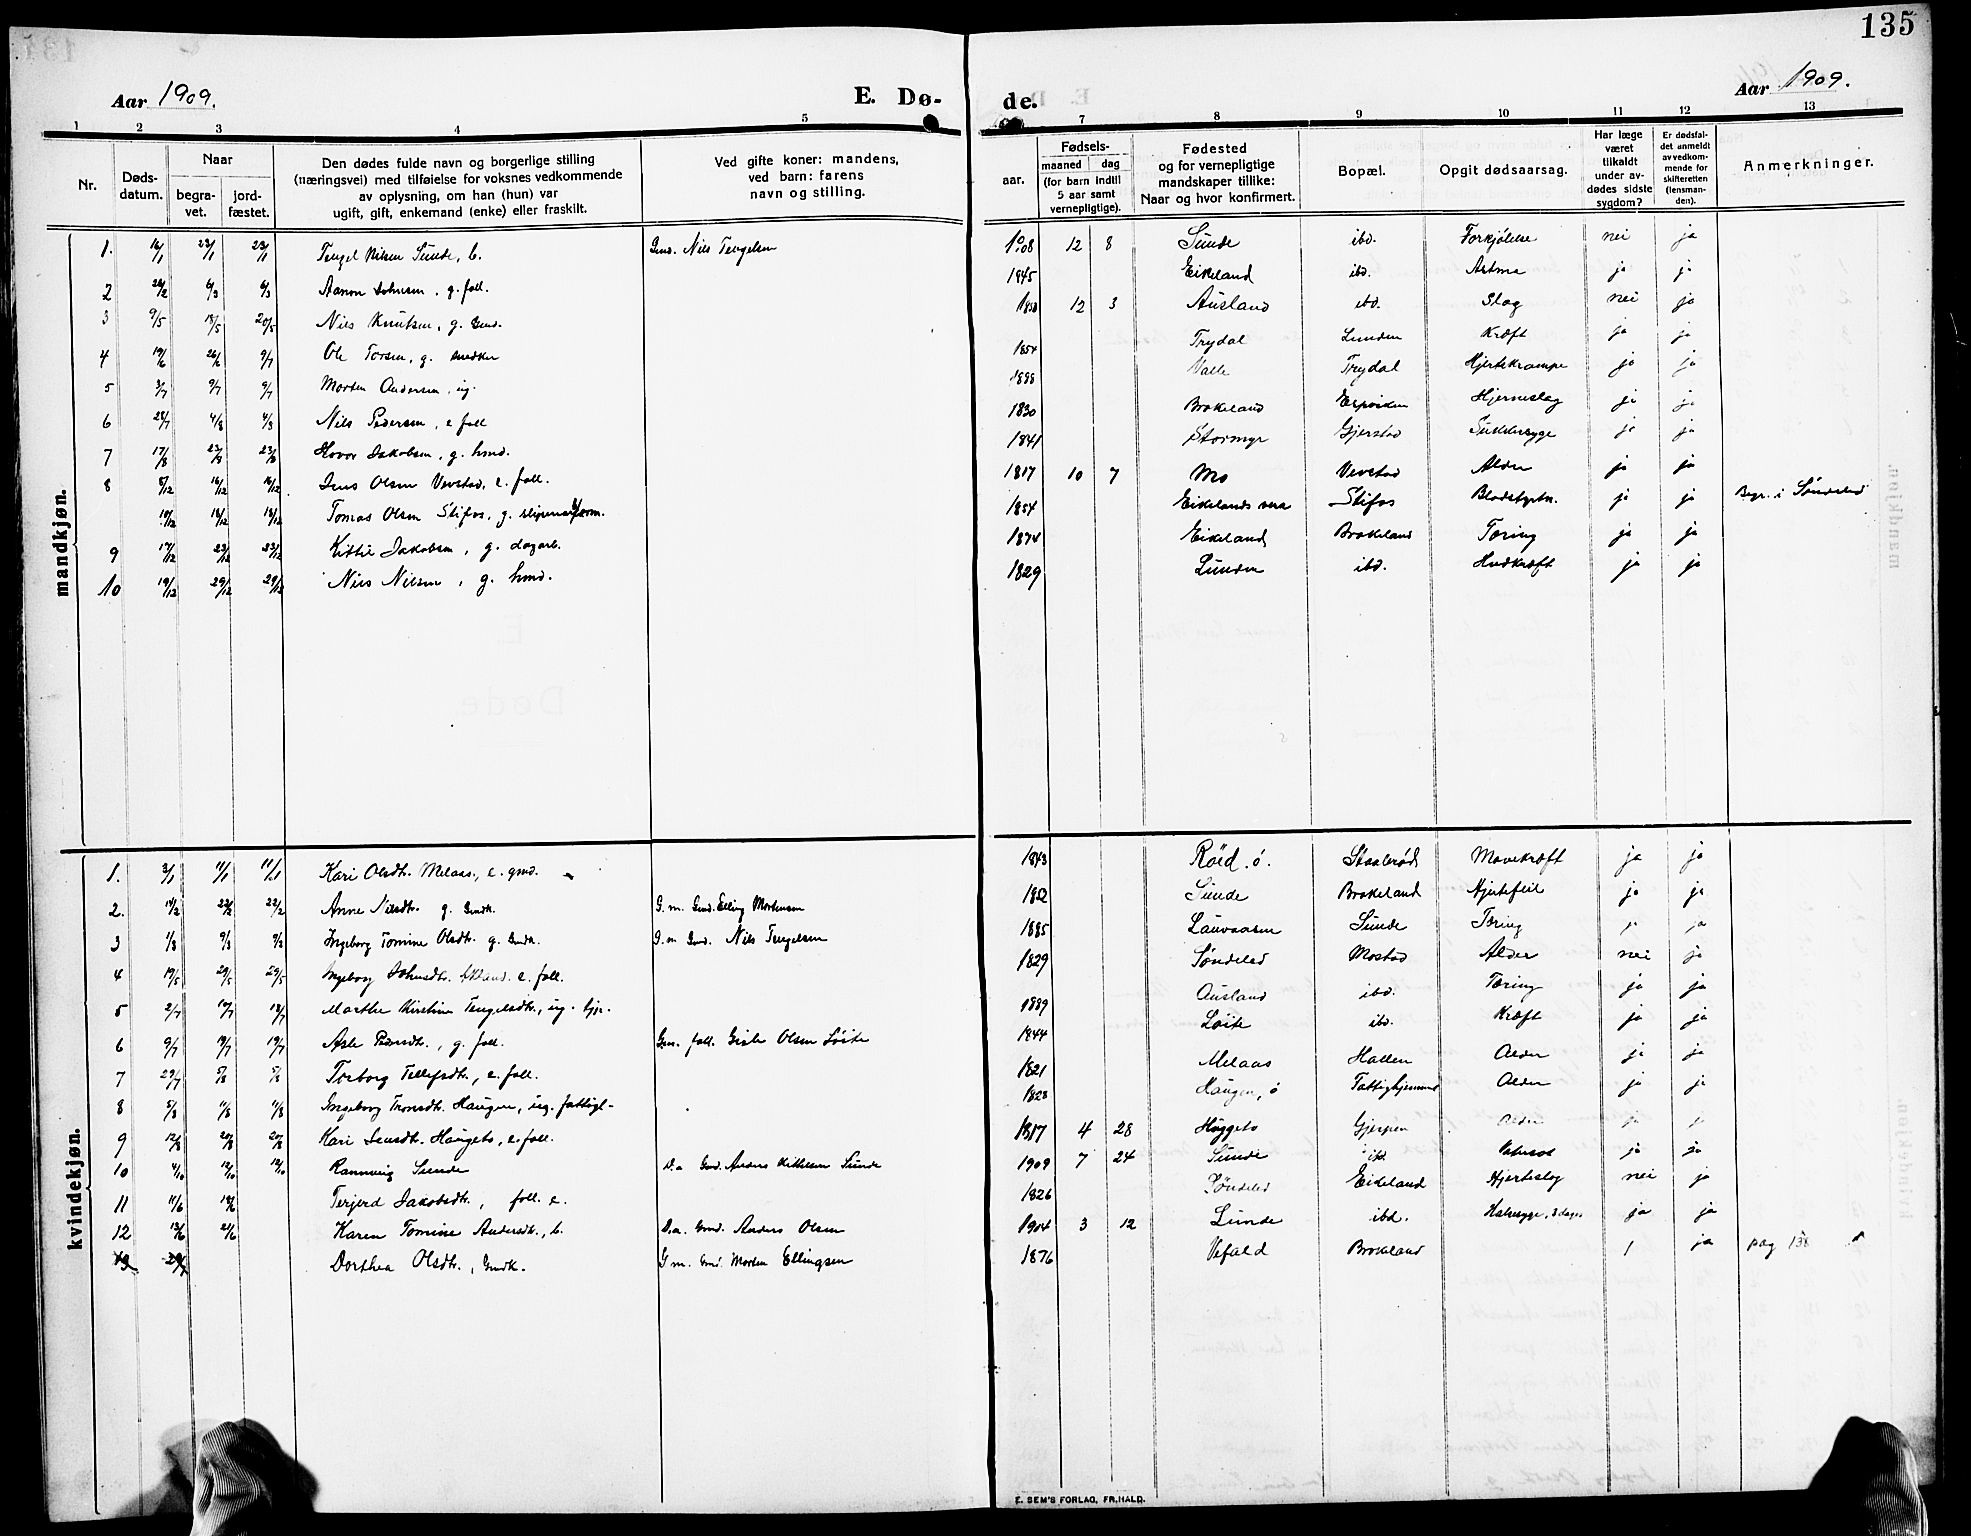 135
Aar 1909.
E. Dø-
de.
Aar 1909.
1 2 3 4 5 7 8 9 10 11 12 13
Nr.
Døds-
datum.
Naar
begra-
vet.
jord-
fæstet.
Den dødes fulde navn og borgerlige stilling
(næringsvei) med tilføielse for voksnes vedkommende
av oplysning, om han (hun) var
ugift, gift, enkemand (enke) eller fraskilt.
Ved gifte koner: mandens,
ved barn: farens
navn og stilling.
aar.
Fødsels-
maaned dag
(for barn indtil
5 aar samt
vernepligtige).
Fødested
og for vernepligtige
mandskaper tillike:
Naar og hvor konfirmert.
Bopæl.
Opgit dødsaarsag.
Har læge
været
tilkaldt
under av-
dødes sidste
sygdom?
Er dødsfal-
det anmeldt
av vedkom-
mende for
skifteretten
(lensman-
den).
Anmerkninger.
mandkjøn.
1. 16/1 23/1 23/1 Tengel Nilsen Sunde, b. Gmd. Nils Tengelsen 1908 12 8 Sunde ibd. Forkjølelse nei ja
2 6/3 6/3 Aanon Johnsen, g. foll. 1845 Eikeland ibd. Astma ja ja
3 9/5 18/5 20/5 Nils Knutsen, g. Gmd. 12 3 Ausland ibd. Slag nei ja
4 19/6 26/6 9/7 Ole Torsen, g. snedker 1854 Trydal Lunden Kræft ja ja
5 3/7 9/7 9/7 Morten Andersen, ug. 1888 Valle Trydal Hjertekrampe ja ja
6 28/7 4/8 4/8 Nils Pedersen, e foll 1830 Brokeland Espviken Hjerneslag ja ja
7 17/8 23/8 23/8 Hovor Jakobsen, g. hmd. 1841 Stormyr Gjerstad Sukkersyge ja ja
8 8/12 16/12 16/12 Jens Olsen Vevstad, e. foll. 1817 10 7 Mo Vevstad Alder ja ja
10/12 18/12 18/12 Tomas Olsen Stifos, g. 1854 Eikelands Stifos Blodstyrtn. ja ja Begr. i Søndeled
9 17/12 23/12 23/12 Kittil Jakobsen, g. dagarb. 1874 Eikeland Brokeland Tæring ja ja
10 19/12 29/12 29/12 Nils Nilsen, g. hmd. 1829 Lunden ibd. Hudkræft ja ja
kvindekjøn.
1. 3/1 11/1 11/1 Kari Olsdtr. Melaas, e. gmd. 1843 Røed ø. Staalerød Mavekræft ja ja
2. 14/2 22/2 22/2 Anne Nilsdtr. g. Gmdk. G. m. Gmd. Elling Mortensen 1852 Sunde Brokeland Hjertefeil ja ja
3 1/3 9/3 9/3 Ingeborg Tomine Olsdtr. g. Gmdk. G. m Gmd. Nils Tengelsen 1885 Lauvaasen Sunde Tæring ja ja
4 19/5 29/5 29/5 Ingeborg Johnsdtr. e. foll. 1829 Søndeled Mostad Alder nei ja
5 2/7 10/7 18/7 Marthe Kirstine Tengelsdtr., ug. tjp. 1889 Ausland ibd. Tæring ja ja
6 9/7 19/7 19/7 Asle Pedersdtr., g. foll. G.m. foll. Gisle Olsen Løite 1844 Løite ibd. Kræft ja ja
7 29/7 5/8 5/8 Torborg Tellefsdtr., e. foll. 1821 Melaas Hallen Alder ja ja
8 5/8 11/8 11/8 Ingeborg Tronsdtr. Haugen, ug. fattigl. 1828 Haugen, ø Fattighjemmet Alder ja ja
9 12/8 20/8 20/8 Kari Jensdtr. Haugeto, e. foll. 1817 4 28 Alder ja ja
10 4/10 12/10 12/10 Rannveig Sunde D. a Gmd. Anders Kittelsen Sunde 1909 7 24 Sunde ibd. ja ja
11 11/6 Terjerd Jakobsdtr., foll. e. 1826 Søndeled Eikeland Hjerteslag nei ja
12 13/6 21/6 Karen Tomine Andersdtr., b. D. a. Gmd. Anders Olsen 1904 3 12 Lunde ibd. Halssyge, 3 dage ja ja
13 Dorthea Olsdtr., Gmdk. G m. Gmd. Morten Ellingsen 1876 Vefald Brokeland 1 ja pag 138
E. SEM'S FORLAG, FR.HALD.